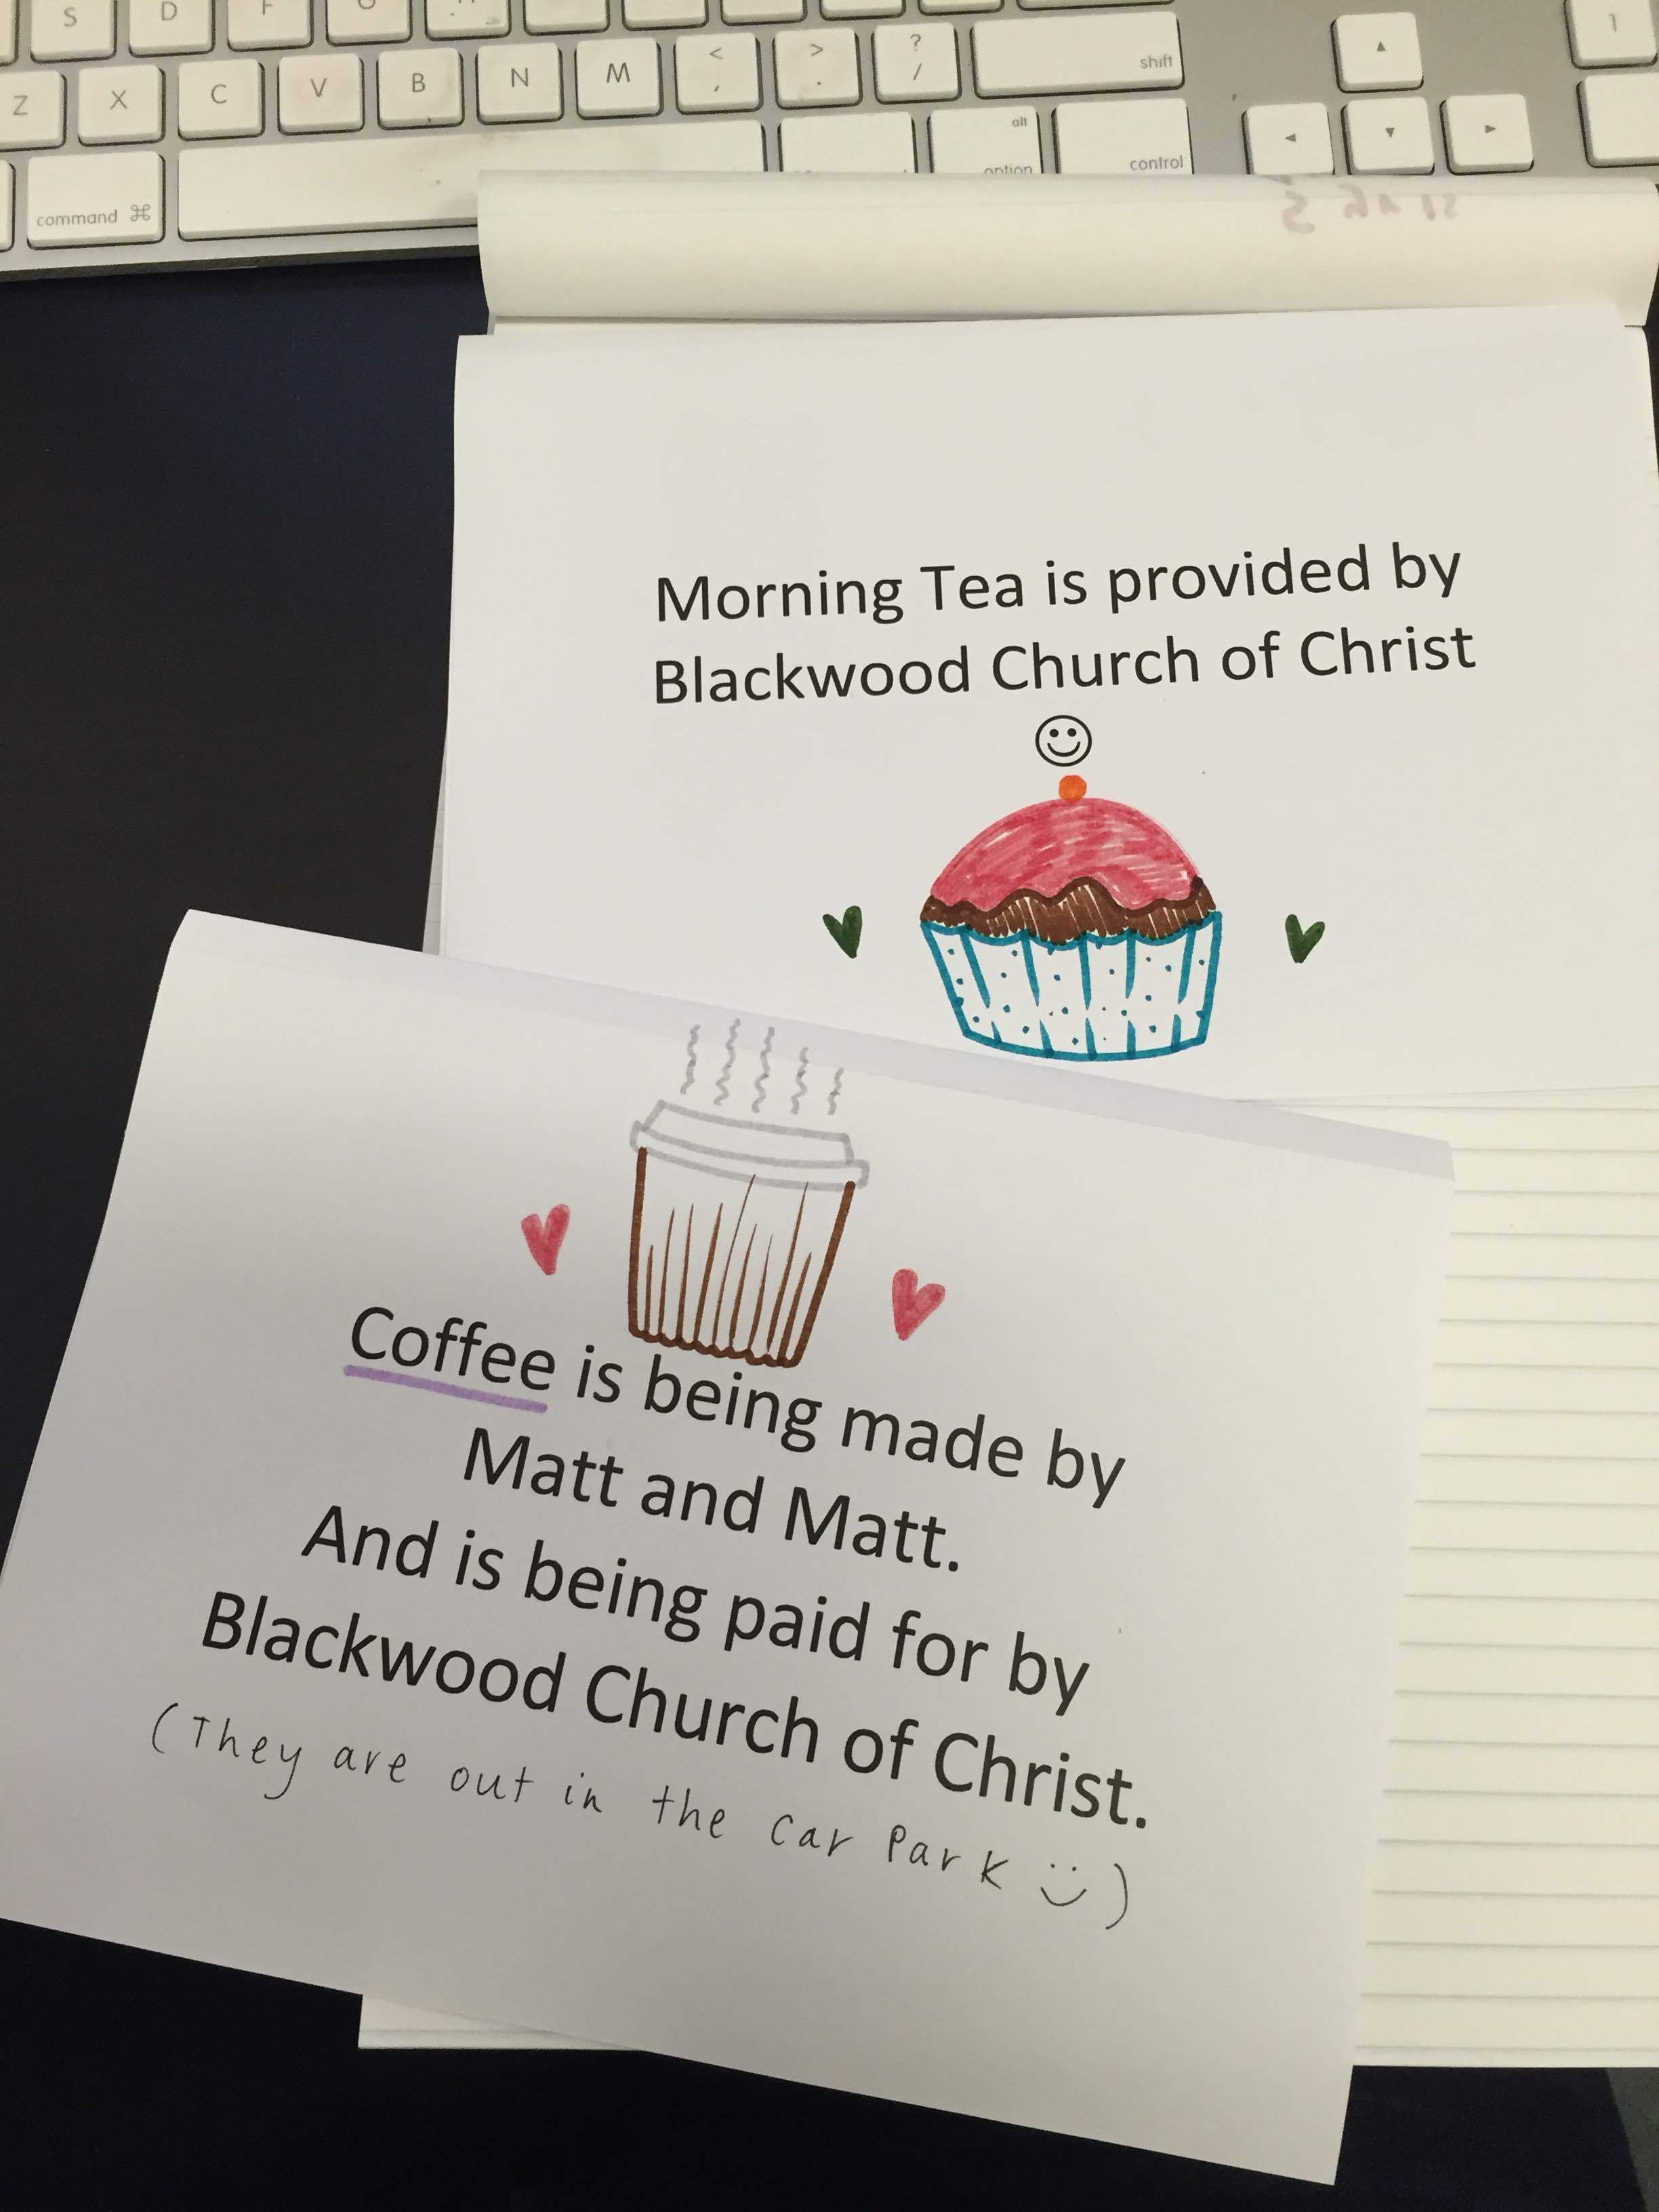 S D F
Z X C V B N M < , > . ? / shift
1
command ⌘ alt option control
Morning Tea is provided by
Blackwood Church of Christ
☺
Coffee is being made by
Matt and Matt.
And is being paid for by
Blackwood Church of Christ.
(They are out in the car Park :))